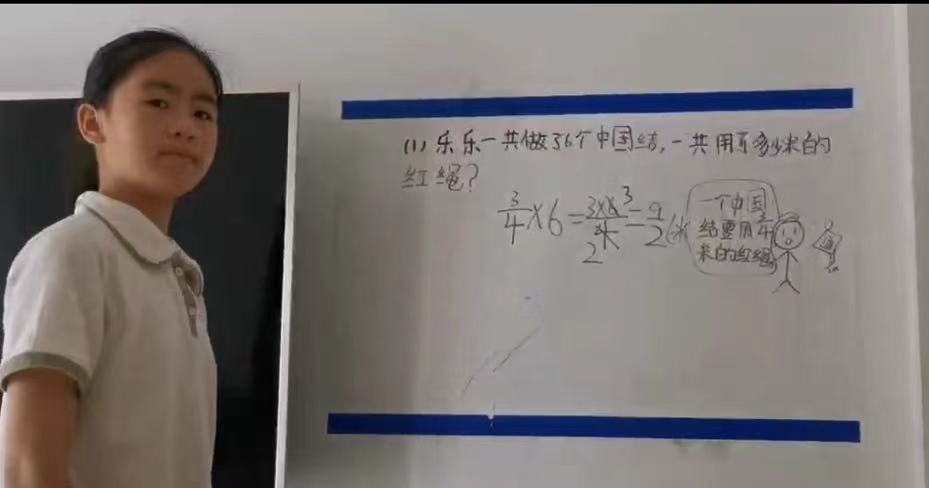 (1) 乐乐一共做了6个中国结,一共用了多少米的
红绳?
3/4×6=3×6/4=9/2(米
3
2
一个中国
结要用3/4
米的红绳